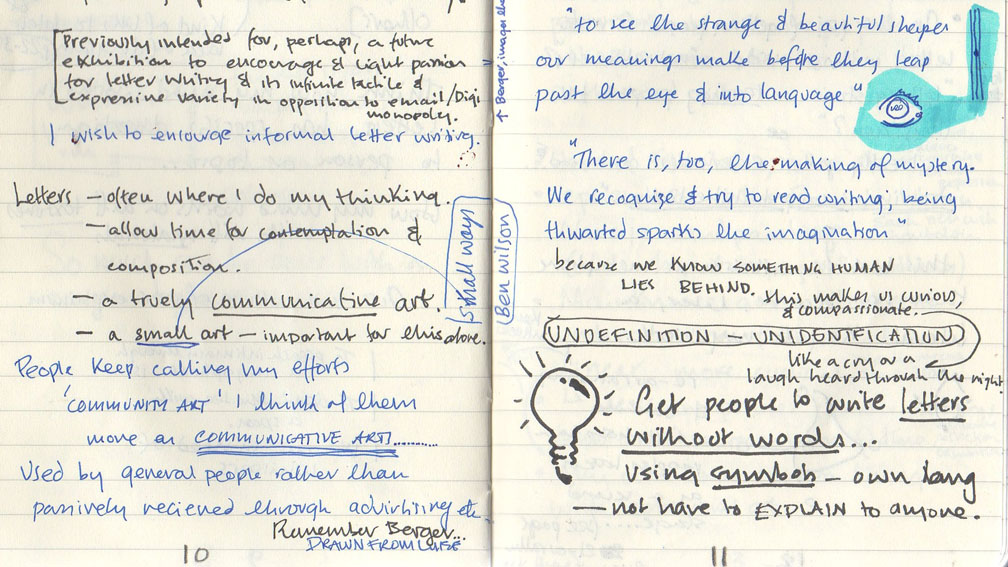 [Previously intended for, perhaps, a future
exhibition to encourage & light passion
for letter writing & its infinite tactile &
expressive variety in opposition to email/Digi
monopoly.
I wish to encourage informal letter writing.
Letters – often where I do my thinking.
– allow time for contemplation &
composition.
– a truely communicative art.
– a small art – important for this alone.
small ways
Ben wilson
People keep calling my efforts
'COMMUNITY ART' I think of them
more as COMMUNICATIVE ART!..........
Used by general people rather than
passively recieved through advirtising etc.
Remember Berger...
DRAWN FROM LOUISE
10
↑ Berger, images
"to see the strange & beautiful shapes
our meanings make before they leap
past the eye & into language"
"There is, too, the making of mystery.
We recognise & try to read writing, being
thwarted sparks the imagination"
because we KNOW SOMETHING HUMAN
LIES BEHIND.
this makes us curious,
& compassionate.
UNDEFINITION – UNIDENTIFICATION
like a cry or a
laugh heard through the night
Get people to write letters
without words...
Using symbols – own lang
– not have to EXPLAIN to anyone.
11